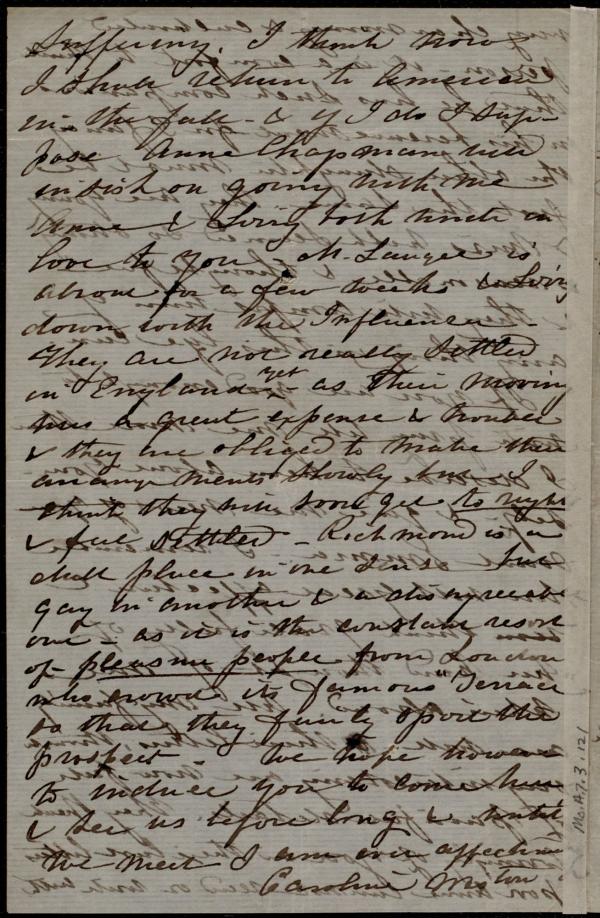 suffering. I think now
I shall return to America
in the fall - & if I do I sup-
pose Anne Chapman will
insish on going with me
Anne & Lizzy both unite in
love to you - M. Laugel is
abroad for a few weeks & Lizzy
down with the Influenza -
They are not really settled
in England yet - as their moving
has a great expense & trouble
& they are obliged to make their
arrangements slowly but I
think they will soon get to rights
& feel settled - Richmond is a
dull place in one sense but
gay in another & a disagreeable
one - as it is the constant resort
of pleasure people from London
who crowd its famous "Terrace
so that they fairly spoil the
prospect - We hope however
to induce you to come here
& see us before long & until
we meet I am ever affection
Caroline Weston
Ms.A.7.3.121